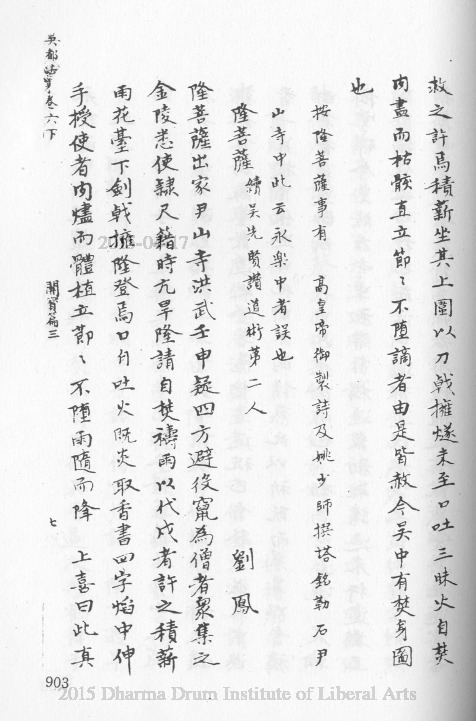 救之許焉積薪坐其上圍以刀戟擁燧未至口吐三昧火自焚
肉盡而枯骸直立節〻不墮謫者由是皆赦今吳中有焚身圖
也
按隆菩薩事有 高皇帝御製詩及姚少師撰塔銘勒石尹
山寺中此云永樂中者誤也
隆菩薩 續吳先賢讚道術第二人 劉鳳
隆菩薩出家尹山寺洪武壬申疑四方避役竄為僧者眾集之
金陵悉使隸尺籍時亢旱隆請自焚禱雨以代戍者許之積薪
雨花臺下劍戟擁隆登焉口自吐火既炎取香書四字焰中伸
手授使者肉燼而體植立節〻不墮雨隨而降 上喜曰此真
吳都法乘卷六下 開寶篇三 七
903
2015 Dharma Drum Institute of Liberal Arts